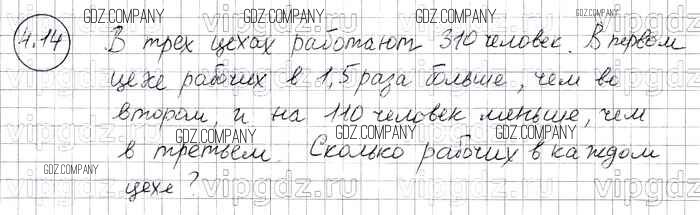 GDZ.COMPANY GDZ.COMPANY GDZ.COMPANY GDZ.COMPANY
4.14 В трех цехах работают 310 человек. В первом
цехе рабочих в 1,5 раза больше, чем во
втором, и на 110 человек меньше, чем
GDZ.COMPANY GDZ.COMPANY GDZ.COMPANY GDZ.COMPANY
в третьем. Сколько рабочих в каждом
GDZ.COMPANY
цехе?
vipgdz.ru